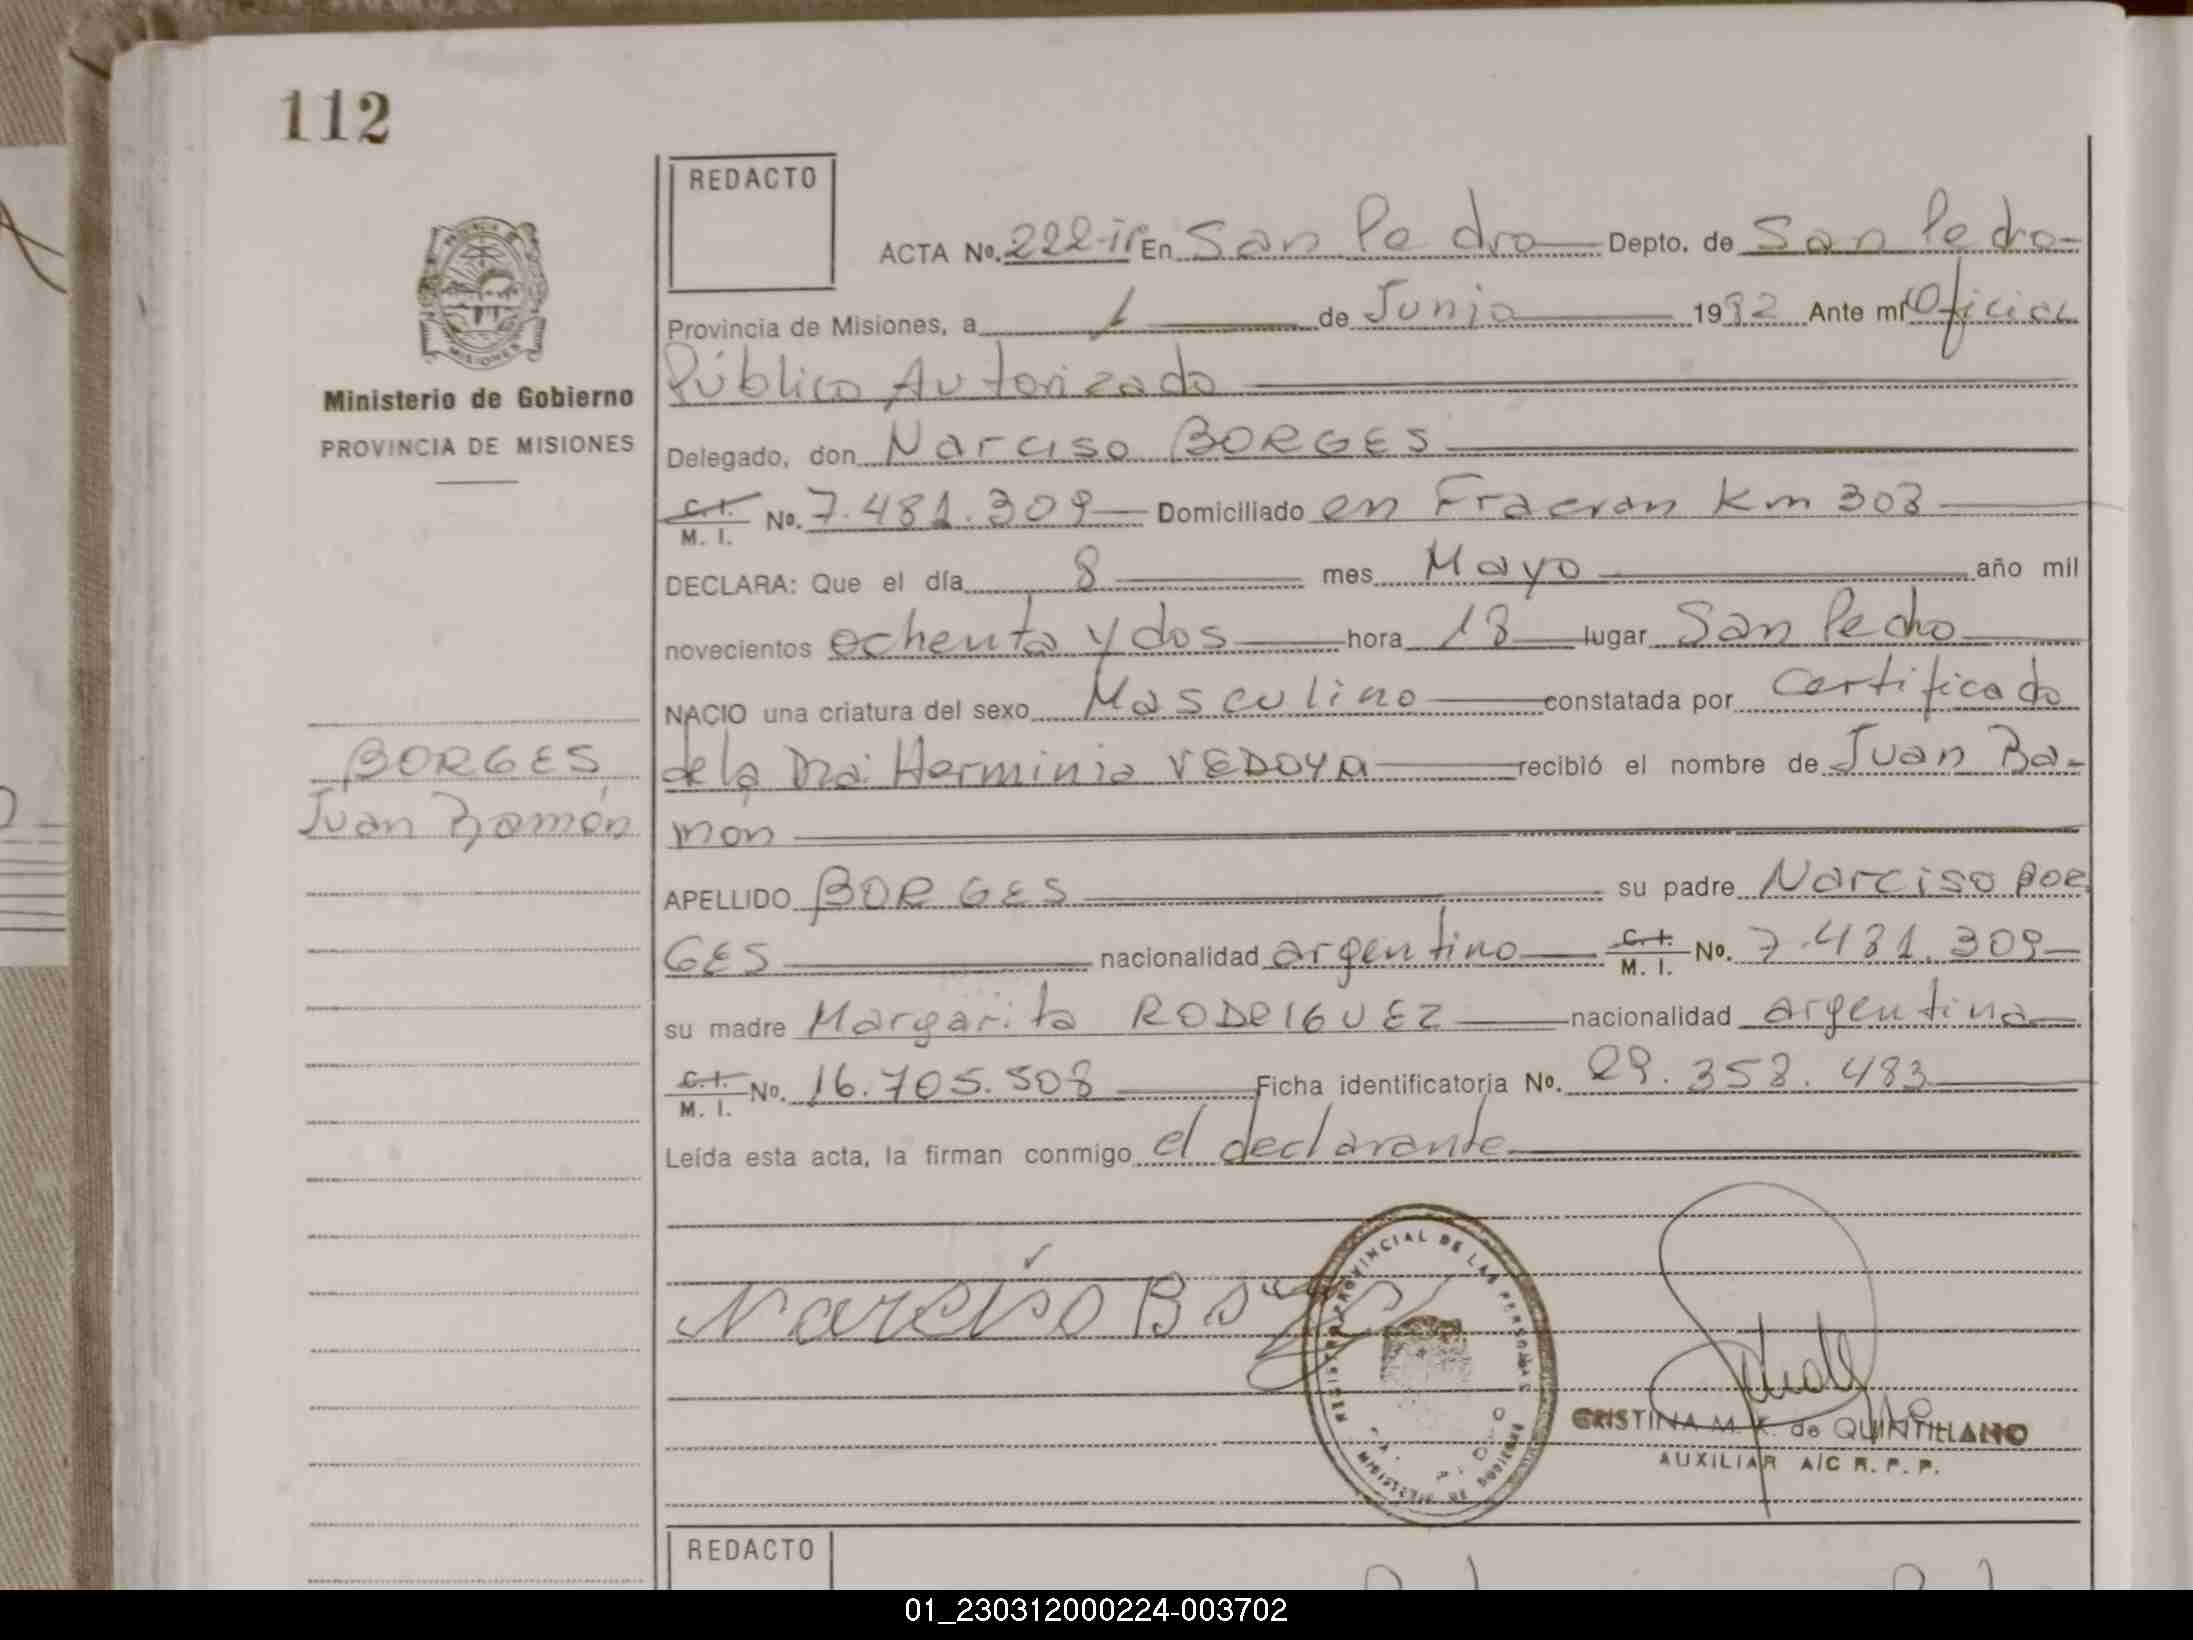 112
REDACTO
ACTA No. 222-ir En San Pedro Depto. de San Pedro
Provincia de Misiones, a 1 de Junio 1982 Ante mi Oficial
Público Autorizado
Ministerio de Gobierno
PROVINCIA DE MISIONES
Delegado, don Narciso BORGES
C. I. / M. I. No. 7.481.309 Domiciliado en Fracran Km 303
DECLARA: Que el día 8 mes Mayo año mil
novecientos ochenta y dos hora 18 lugar San Pedro
NACIO una criatura del sexo Masculino constatada por Certificado
de la Dra: Herminia VEDOYA recibió el nombre de Juan Ra-
mon
BORGES
Juan Ramón
APELLIDO BORGES su padre Narciso BOR
GES nacionalidad argentino C. I. / M. I. No. 7.481.309
su madre Margarita RODRIGUEZ nacionalidad argentina
C. I. / M. I. No. 16.705.508 Ficha identificatoria No. 29.358.483
Leída esta acta, la firman conmigo el declarante
Narciso Borges
PROVINCIAL DE LAS PERSONAS
CRISTINA M. K. de QUINTILLANO
AUXILIAR A/C R. P. P.
REDACTO
01_230312000224-003702